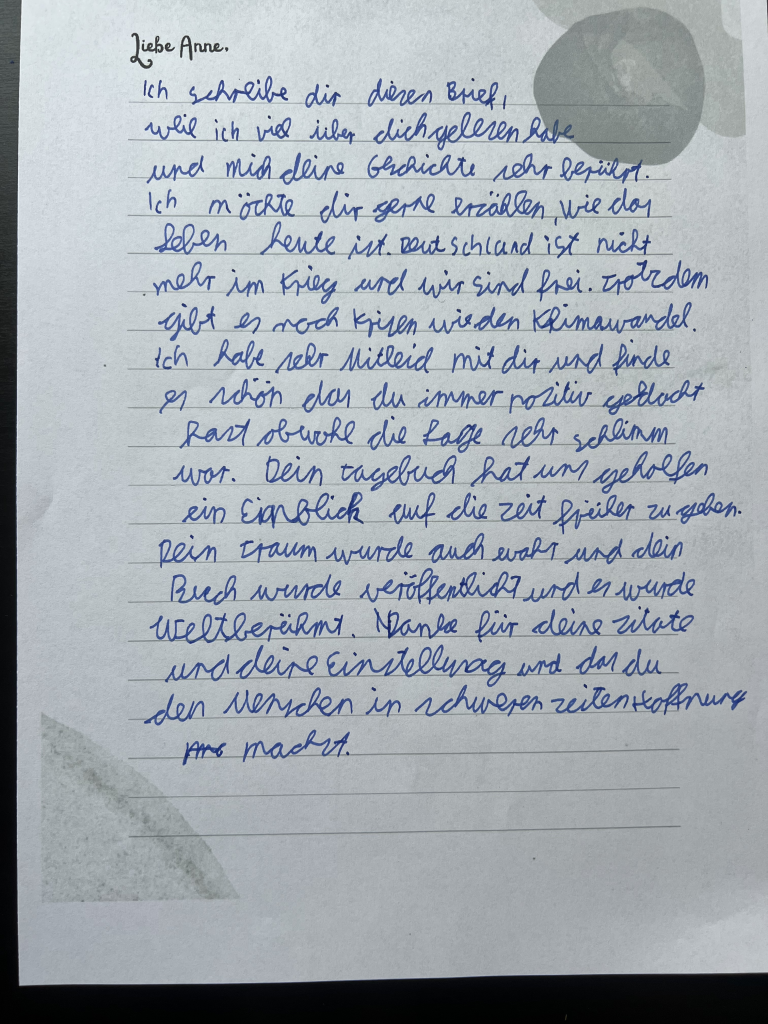 Liebe Anne.
Ich schreibe dir diesen Brief,
weil ich viel über dich gelesen habe
und mich deine Geschichte sehr berührt.
Ich möchte dir gerne erzählen, wie das
Leben heute ist. Deutschland ist nicht
mehr im Krieg und wir sind frei. Trotzdem
gibt es noch Krisen wie den Klimawandel.
Ich habe sehr Mitleid mit dir und finde
es schön das du immer positiv gedacht
hast obwohl die Lage sehr schlimm
war. Dein tagebuch hat uns geholfen
ein Einblick auf die zeit früher zu geben.
Dein Traum wurde auch wahr und dein
Buch wurde veröffentlicht und es wurde
Weltberühmt. Danke für deine zitate
und deine Einstellung und das du
den Menschen in schweren zeiten Hoffnung
machst.